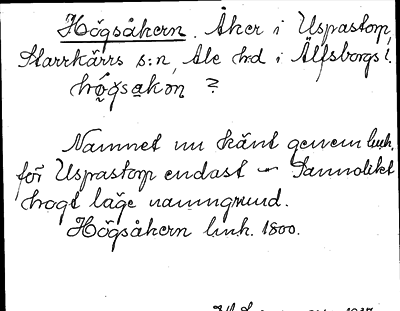 Högsåkern. Åker i Uspastorp,
Starrkärrs s:n, Ale hd i Älfsborgs l.
hǿgsakən ?
Namnet nu känt genom lmh.
för Uspastorp endast – Sannolikt
högt läge namngrund.
Högsåkern lmh. 1800.